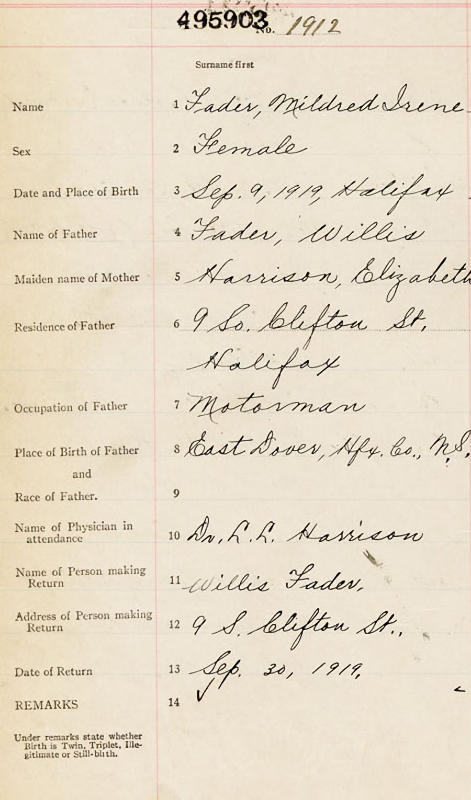 495903
No. 1912
Surname first
Name 1 Fader, Mildred Irene
Sex 2 Female
Date and Place of Birth 3 Sep. 9, 1919, Halifax
Name of Father 4 Fader, Willis
Maiden name of Mother 5 Harrison, Elizabeth
Residence of Father 6 9 So. Clifton St.
Halifax
Occupation of Father 7 Motorman
Place of Birth of Father 8 East Dover, Hfx. Co., N.S.
and
Race of Father. 9
Name of Physician in
attendance 10 Dr. L. L. Harrison
Name of Person making
Return 11 Willis Fader.
Address of Person making
Return 12 9 S. Clifton St.,
Date of Return 13 Sep. 30, 1919.
REMARKS 14
Under remarks state whether
Birth is Twin, Triplet, Ille-
gitimate or Still-birth.